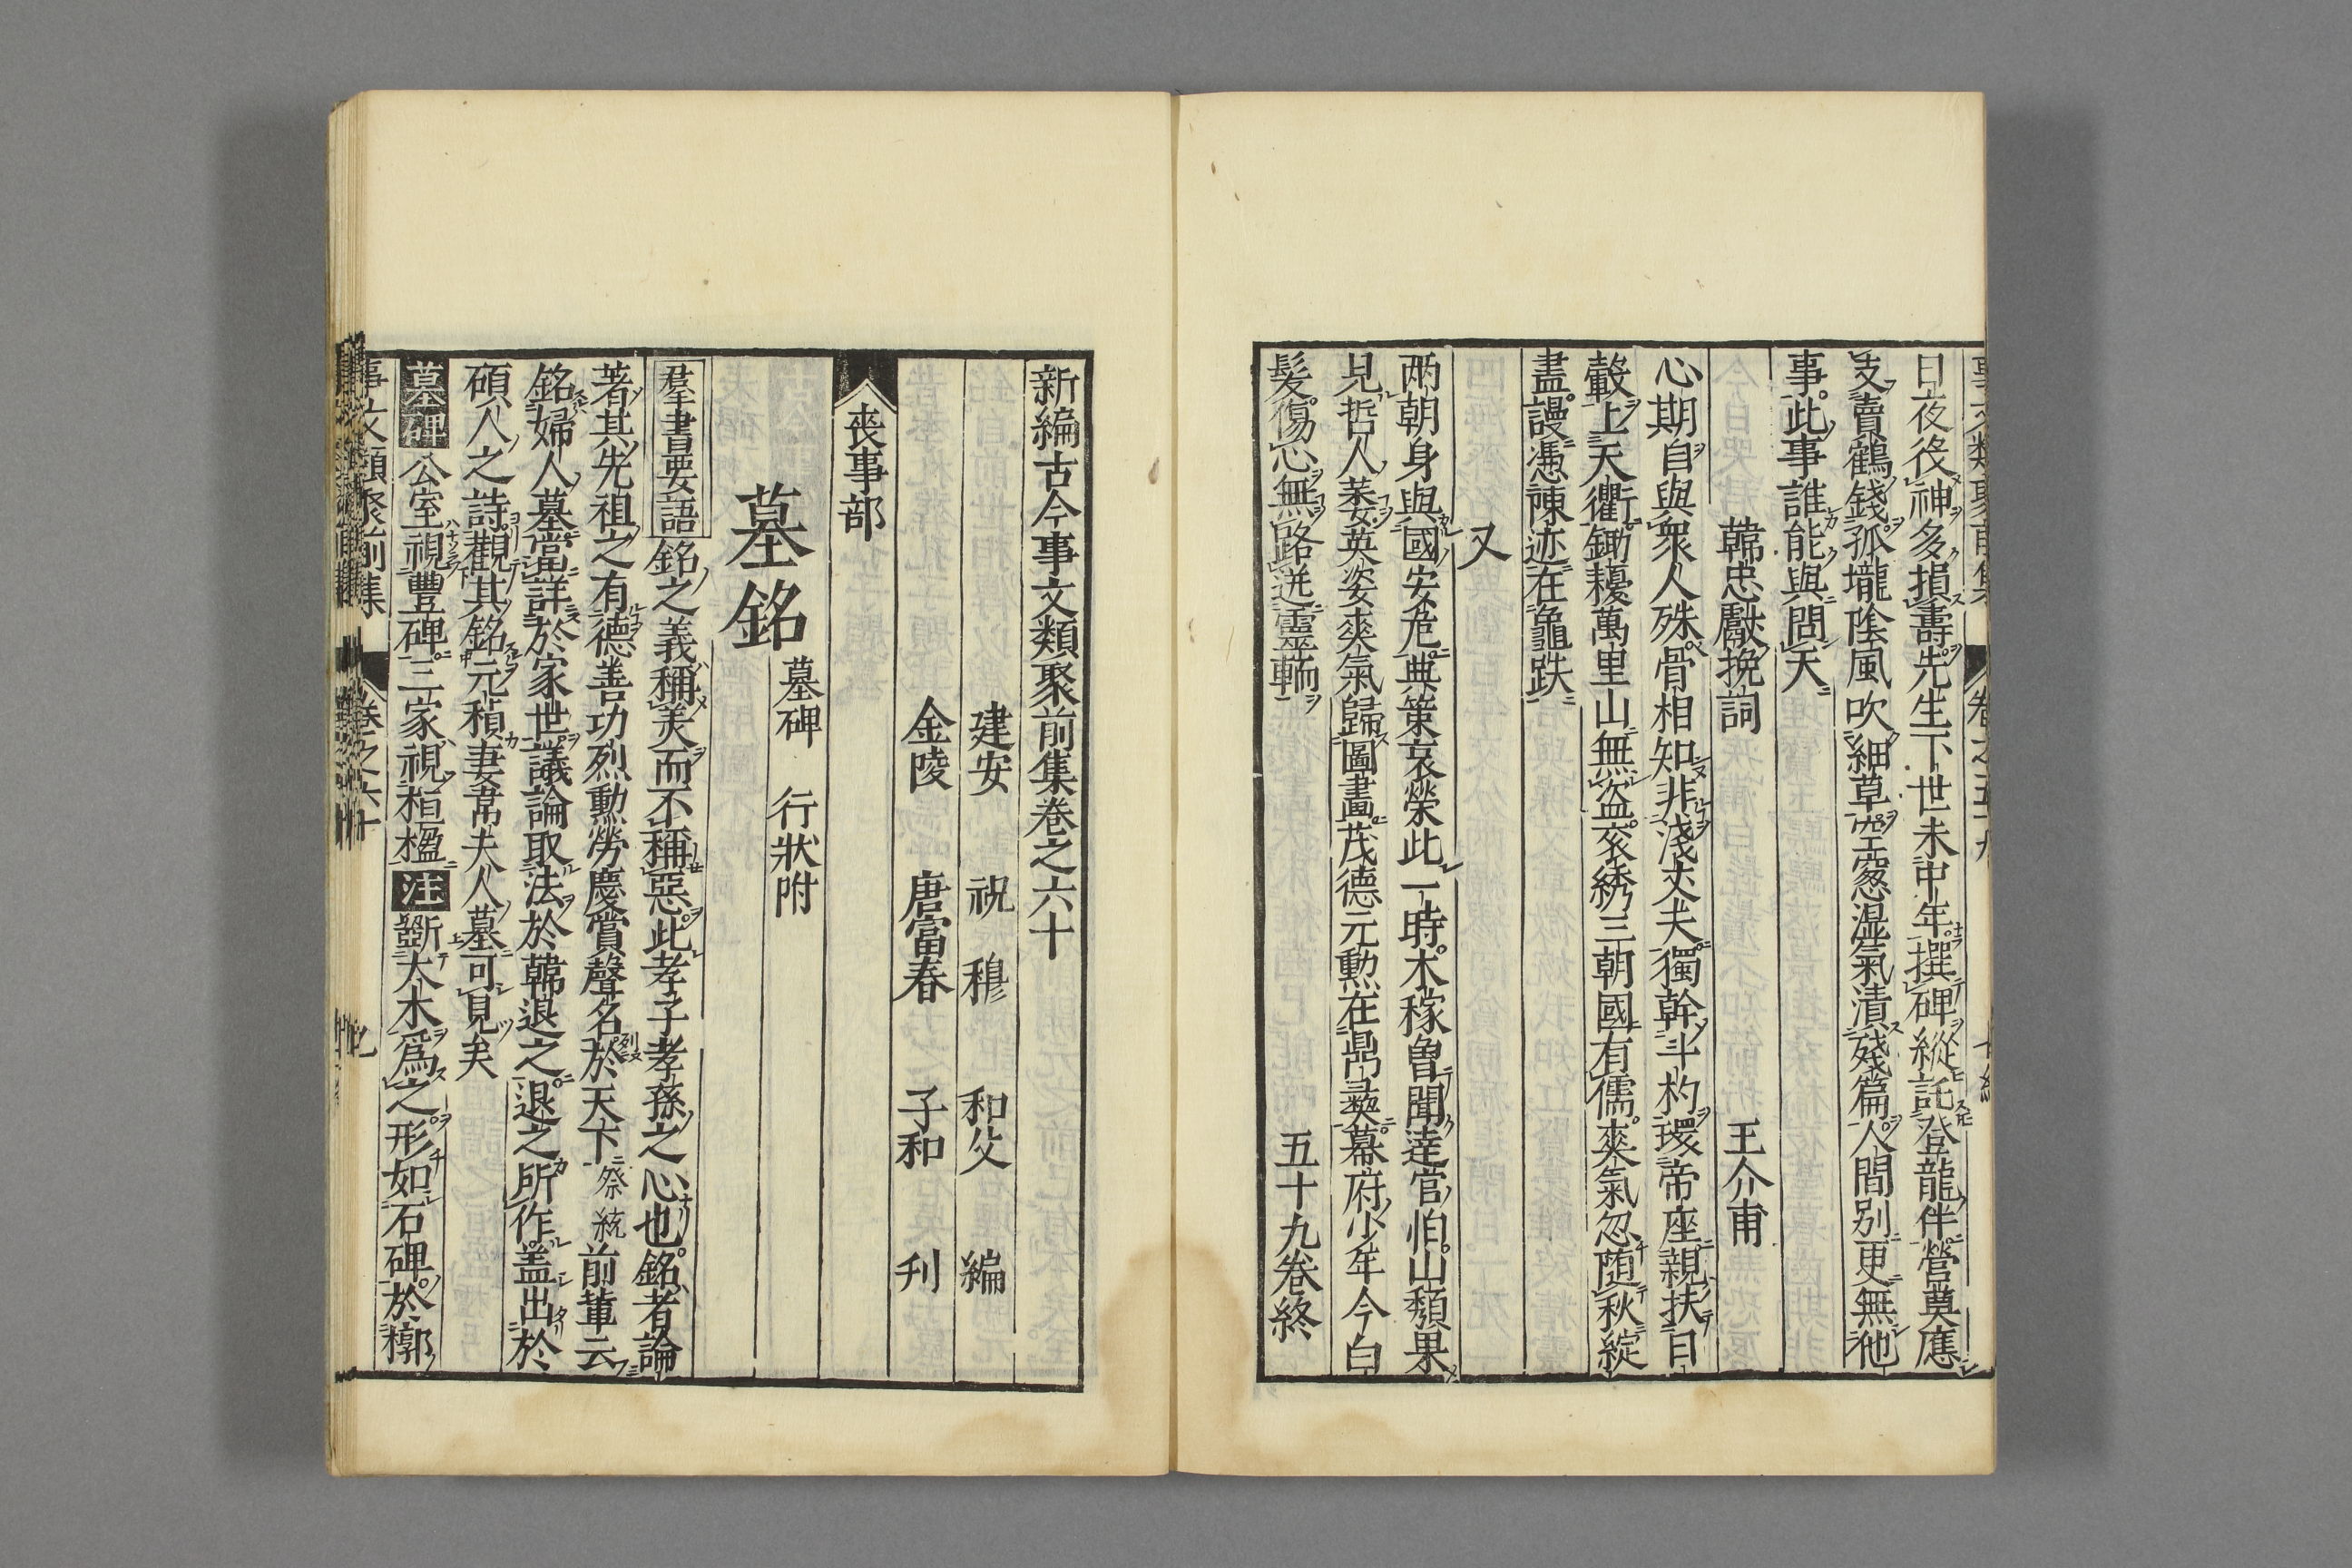 日夜役神多損壽先生下世未中年撰碑縱託登龍伴營奠應
支賣鶴錢孤壠陰風吹細草空窻濕氣漬殘篇人間別更無他
事此事誰能與問天
韓忠獻挽詞 王介甫
心期自與衆人殊骨相知非淺丈夫獨幹斗杓環帝座親扶日
轂上天衢鋤耰萬里山無盗衮綉三朝國有儒爽氣忽随秋綻
盡謾憑陳迹在龜趺
又
两朝身與國安危典策哀榮此一時木稼魯聞達官怕山頹果
見哲人萎英姿爽氣歸圖畫茂德元勲在鼎彜幕府少年今白
髮傷心無路送靈輀 五十九卷終
新編古今事文類聚前集卷之六十
建安 祝 穆 和父 編
金陵 唐富春 子和 刋
喪事部
墓銘 墓碑 行狀附
羣書要語 銘之義稱美而不稱惡此孝子孝孫之心也銘者論
著其先祖之有德善功烈勲勞慶賞聲名於天下 祭統 前軰云
銘婦人墓當詳於家世議論取法於韓退之退之所作盖出於
碩人之詩觀其銘元稹妻韋夫人墓可見矣
墓碑 公室視豐碑三家視桓楹 注 斵大木爲之形如石碑於槨
事文類聚前集 卷之六十